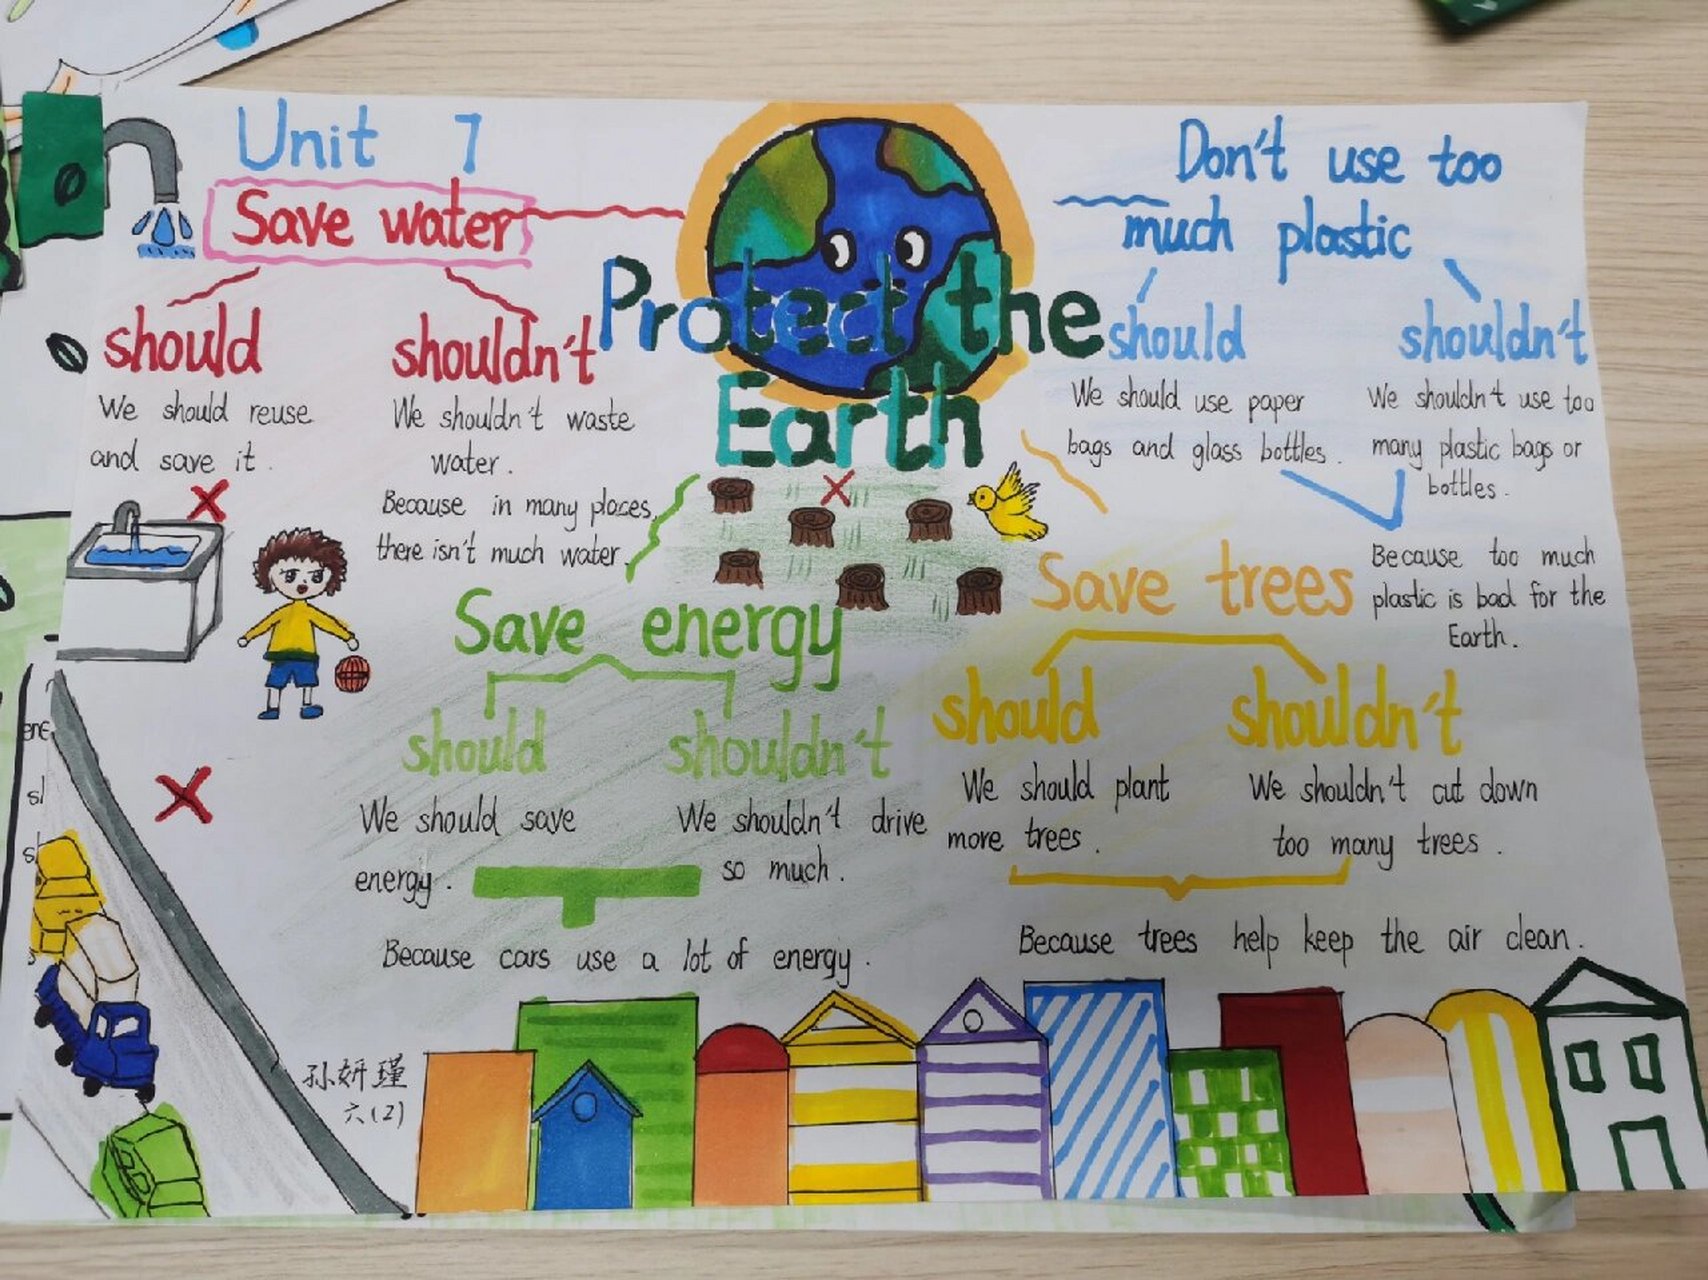 Unit 7
Save water
should
We should reuse
and save it.
shouldn't
We shouldn't waste
water.
Because in many places,
there isn't much water.
Protect the
Earth
Don't use too
much plastic
should
We should use paper
bags and glass bottles.
shouldn't
We shouldn't use too
many plastic bags or
bottles.
Because too much
plastic is bad for the
Earth.
Save energy
should
We should save
energy.
shouldn't
We shouldn't drive
so much.
Because cars use a lot of energy.
Save trees
should
We should plant
more trees.
shouldn't
We shouldn't cut down
too many trees.
Because trees help keep the air clean.
孙妍瑾
六(2)